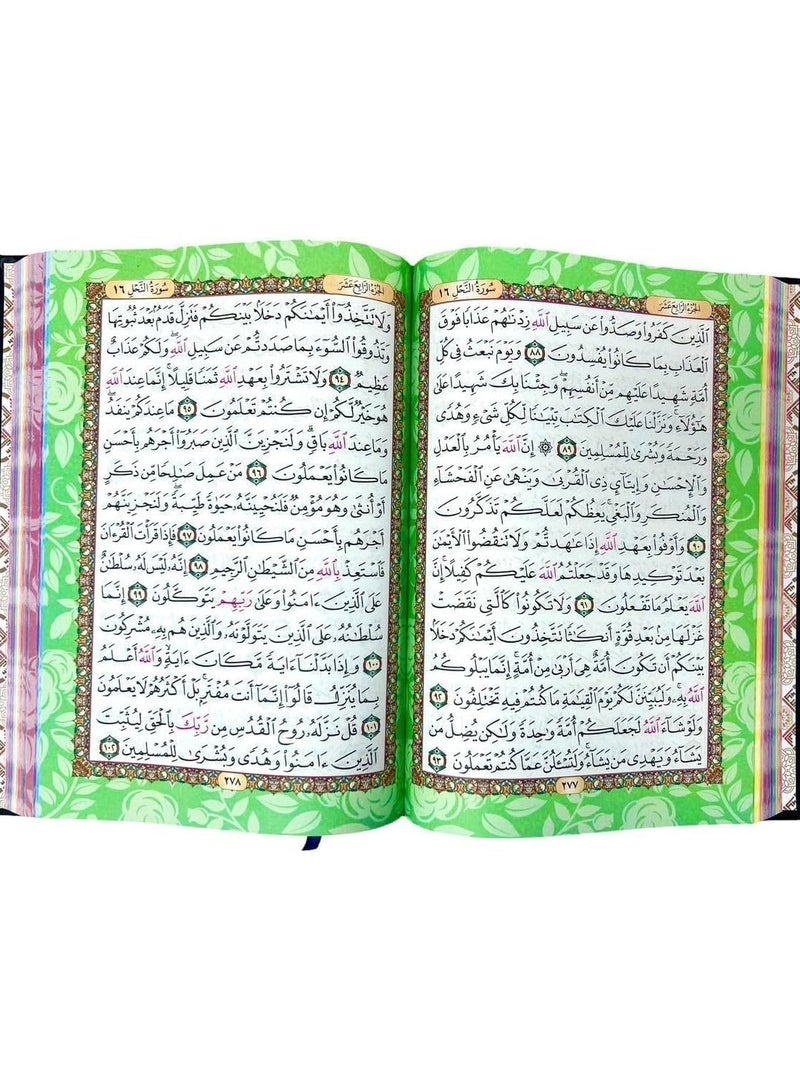 الجزء الرابع عشر
سورة النحل ١٦
ٱلَّذِينَ كَفَرُواْ وَصَدُّواْ عَن سَبِيلِ ٱللَّهِ زِدۡنَٰهُمۡ عَذَابٗا فَوۡقَ
ٱلۡعَذَابِ بِمَا كَانُواْ يُفۡسِدُونَ ٨٨ وَيَوۡمَ نَبۡعَثُ فِي كُلِّ
أُمَّةٖ شَهِيدًا عَلَيۡهِم مِّنۡ أَنفُسِهِمۡۖ وَجِئۡنَا بِكَ شَهِيدًا عَلَىٰ
هَٰٓؤُلَآءِۚ وَنَزَّلۡنَا عَلَيۡكَ ٱلۡكِتَٰبَ تِبۡيَٰنٗا لِّكُلِّ شَيۡءٖ وَهُدٗى
وَرَحۡمَةٗ وَبُشۡرَىٰ لِلۡمُسۡلِمِينَ ٨٩ ۞ إِنَّ ٱللَّهَ يَأۡمُرُ بِٱلۡعَدۡلِ
وَٱلۡإِحۡسَٰنِ وَإِيتَآيِٕ ذِي ٱلۡقُرۡبَىٰ وَيَنۡهَىٰ عَنِ ٱلۡفَحۡشَآءِ
وَٱلۡمُنكَرِ وَٱلۡبَغۡيِۚ يَعِظُكُمۡ لَعَلَّكُمۡ تَذَكَّرُونَ
٩٠ وَأَوۡفُواْ بِعَهۡدِ ٱللَّهِ إِذَا عَٰهَدتُّمۡ وَلَا تَنقُضُواْ ٱلۡأَيۡمَٰنَ
بَعۡدَ تَوۡكِيدِهَا وَقَدۡ جَعَلۡتُمُ ٱللَّهَ عَلَيۡكُمۡ كَفِيلًاۚ إِنَّ
ٱللَّهَ يَعۡلَمُ مَا تَفۡعَلُونَ ٩١ وَلَا تَكُونُواْ كَٱلَّتِي نَقَضَتۡ
غَزۡلَهَا مِنۢ بَعۡدِ قُوَّةٍ أَنكَٰثٗا تَتَّخِذُونَ أَيۡمَٰنَكُمۡ دَخَلَۢا
بَيۡنَكُمۡ أَن تَكُونَ أُمَّةٌ هِيَ أَرۡبَىٰ مِنۡ أُمَّةٍۚ إِنَّمَا يَبۡلُوكُمُ
ٱللَّهُ بِهِۦۚ وَلَيُبَيِّنَنَّ لَكُمۡ يَوۡمَ ٱلۡقِيَٰمَةِ مَا كُنتُمۡ فِيهِ تَخۡتَلِفُونَ ٩٢
وَلَوۡ شَآءَ ٱللَّهُ لَجَعَلَكُمۡ أُمَّةٗ وَٰحِدَةٗ وَلَٰكِن يُضِلُّ مَن
يَشَآءُ وَيَهۡدِي مَن يَشَآءُۚ وَلَتُسۡـَٔلُنَّ عَمَّا كُنتُمۡ تَعۡمَلُونَ ٩٣
٢٧٧
الجزء الرابع عشر
سورة النحل ١٦
وَلَا تَتَّخِذُوٓاْ أَيۡمَٰنَكُمۡ دَخَلَۢا بَيۡنَكُمۡ فَتَزِلَّ قَدَمُۢ بَعۡدَ ثُبُوتِهَا
وَتَذُوقُواْ ٱلسُّوٓءَ بِمَا صَدَدتُّمۡ عَن سَبِيلِ ٱللَّهِ وَلَكُمۡ عَذَابٌ
عَظِيمٞ ٩٤ وَلَا تَشۡتَرُواْ بِعَهۡدِ ٱللَّهِ ثَمَنٗا قَلِيلًاۚ إِنَّمَا عِندَ ٱللَّهِ
هُوَ خَيۡرٞ لَّكُمۡ إِن كُنتُمۡ تَعۡلَمُونَ ٩٥ مَا عِندَكُمۡ يَنفَدُ
وَمَا عِندَ ٱللَّهِ بَاقٖۗ وَلَنَجۡزِيَنَّ ٱلَّذِينَ صَبَرُوٓاْ أَجۡرَهُم بِأَحۡسَنِ
مَا كَانُواْ يَعۡمَلُونَ ٩٦ مَنۡ عَمِلَ صَٰلِحٗا مِّن ذَكَرٍ
أَوۡ أُنثَىٰ وَهُوَ مُؤۡمِنٞ فَلَنُحۡيِيَنَّهُۥ حَيَوٰةٗ طَيِّبَةٗۖ وَلَنَجۡزِيَنَّهُمۡ
أَجۡرَهُم بِأَحۡسَنِ مَا كَانُواْ يَعۡمَلُونَ ٩٧ فَإِذَا قَرَأۡتَ ٱلۡقُرۡءَانَ
فَٱسۡتَعِذۡ بِٱللَّهِ مِنَ ٱلشَّيۡطَٰنِ ٱلرَّجِيمِ ٩٨ إِنَّهُۥ لَيۡسَ لَهُۥ سُلۡطَٰنٌ
عَلَى ٱلَّذِينَ ءَامَنُواْ وَعَلَىٰ رَبِّهِمۡ يَتَوَكَّلُونَ ٩٩ إِنَّمَا
سُلۡطَٰنُهُۥ عَلَى ٱلَّذِينَ يَتَوَلَّوۡنَهُۥ وَٱلَّذِينَ هُم بِهِۦ مُشۡرِكُونَ
١٠٠ وَإِذَا بَدَّلۡنَآ ءَايَةٗ مَّكَانَ ءَايَةٖ وَٱللَّهُ أَعۡلَمُ
بِمَا يُنَزِّلُ قَالُوٓاْ إِنَّمَآ أَنتَ مُفۡتَرِۭۚ بَلۡ أَكۡثَرُهُمۡ لَا يَعۡلَمُونَ
١٠١ قُلۡ نَزَّلَهُۥ رُوحُ ٱلۡقُدُسِ مِن رَّبِّكَ بِٱلۡحَقِّ لِيُثَبِّتَ
ٱلَّذِينَ ءَامَنُواْ وَهُدٗى وَبُشۡرَىٰ لِلۡمُسۡلِمِينَ ١٠٢
٢٧٨